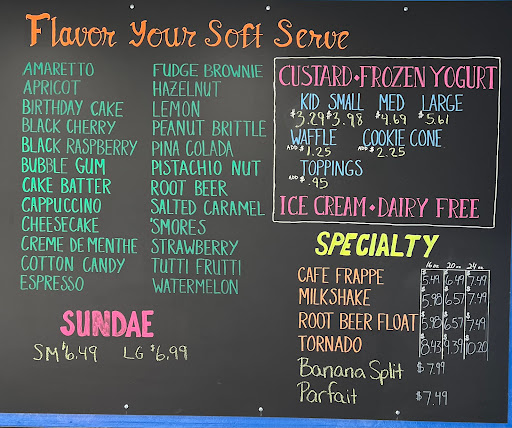 Flavor Your Soft Serve
AMARETTO
APRICOT
BIRTHDAY CAKE
BLACK CHERRY
BLACK RASPBERRY
BUBBLE GUM
CAKE BATTER
CAPPUCCINO
CHEESECAKE
CREME DE MENTHE
COTTON CANDY
ESPRESSO
FUDGE BROWNIE
HAZELNUT
LEMON
PEANUT BRITTLE
PINA COLADA
PISTACHIO NUT
ROOT BEER
SALTED CARAMEL
'SMORES
STRAWBERRY
TUTTI FRUTTI
WATERMELON
SUNDAE
SM $6.49 LG $6.99
CUSTARD • FROZEN YOGURT
KID SMALL MED LARGE
$3.29 $3.98 $4.69 $5.61
WAFFLE COOKIE CONE
ADD $1.25 ADD $2.25
TOPPINGS
ADD $.95
ICE CREAM • DAIRY FREE
SPECIALTY
16 oz 20 oz 24 oz
CAFE FRAPPE $5.49 $6.49 $7.49
MILKSHAKE $5.98 $6.57 $7.49
ROOT BEER FLOAT $5.98 $6.57 $7.49
TORNADO $8.43 $9.39 $10.20
Banana Split $7.99
Parfait $7.49